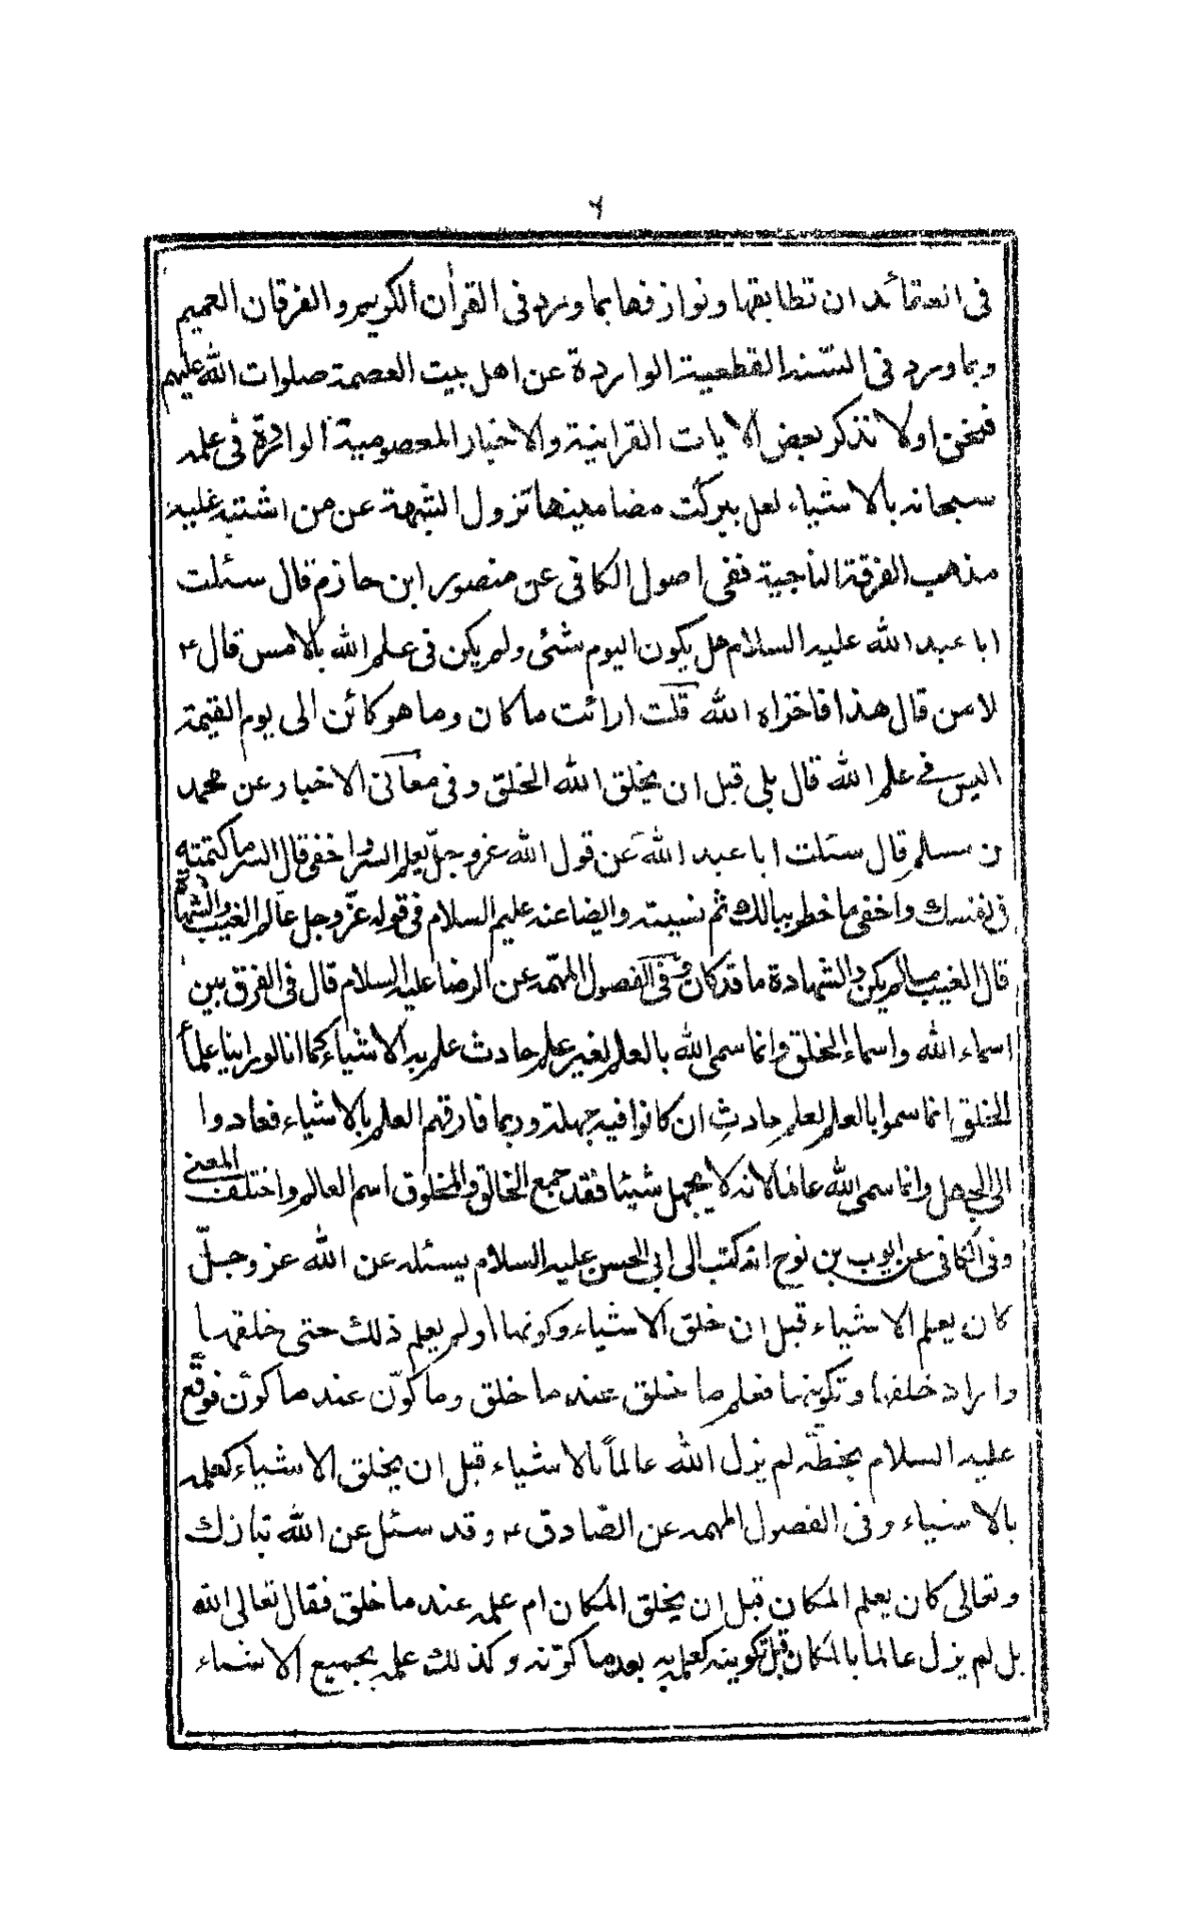 ٦
فى العقائد ان تطابقها ونوازفها بما ورد فى القرأن الكريم والفرقان العميم
وبما ورد فى السّنة القطعية الواردة عن اهل بيت العصمة صلوات الله عليهم
فنحن اولا نذكر بعض الايات القرانية والاخبار المعصومية الواردة فى علمه
سبحانه بالاشياء لعل ببركت مضامينها تزول الشبهة عن من اشتبه عليه
مذهب الفرقة الناجية ففى اصول الكافى عن منصور ابن حازم قال سئلت
ابا عبد الله عليه السلام هل يكون اليوم شئى ولم يكن فى علم الله بالامس قال ؑ
لا من قال هذا فاخزاه الله قلت ارائت ما كان وما هو كائن الى يوم القيمة
اليس فى علم الله قال بلى قبل ان يخلق الله الخلق وفى معانى الاخبار عن محمد
بن مسلم قال سئلت ابا عبد الله عن قول الله عز وجلّ يعلم السر واخفى قال السر ما كتمته
فى نفسك واخفى ما خطر ببالك ثم نسيته وايضا عنه عليهم السلام فى قوله عزّ وجل عالم الغيب والشهادة
قال الغيب ما لم يكن والشهادة ما قد كان وفى الفصول المهمّه عن الرضا عليه السلام قال فى الفرق بين
اسماء الله واسماء الخلق وانما سمى الله بالعلم لغير علم حادث علم به الاشياء كما انا لو راينا علمأ
الخلق انما سموا بالعلم لعلم حادثٍ ان كانوا فيه جهلة وربما فارقهم العلم بالاشياء فعادوا
الى الجهل وانما سمى الله عالما لانه لا يجهل شيئا فقد جمع الخالق والمخلوق اسم العالم واختلف المعنى
وفى الكافى عن ايوب بن نوح انه كتب الى ابى الحسن عليه السلام يسئله عن الله عز وجلّ
كان يعلم الاشياء قبل ان خلق الاشياء وكونها اولم يعلم ذلك حتى خلقها
واراد خلقها وتكوينها فعلم ما خلق عنده ما خلق وما كوّن عند ما كوّن فوقّع
عليه السلام بخطّه لم يزل الله عالماً بالاشياء قبل ان يخلق الاشياء كعلمه
بالاشياء وفى الفصول المهمه عن الصّادق ؑ وقد سئل عن الله تبارك
وتعالى كان يعلم المكان قبل ان يخلق المكان ام علمه عند ما خلق فقال تعالى الله
بل لم يزل عالما بالمكان قبل تكوينه كعلمه به بعد ما كوّنه وكذلك علمه بجميع الاشياء